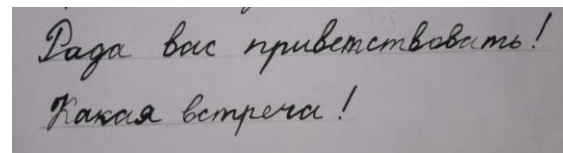 Рада вас приветствовать!
Какая встреча!